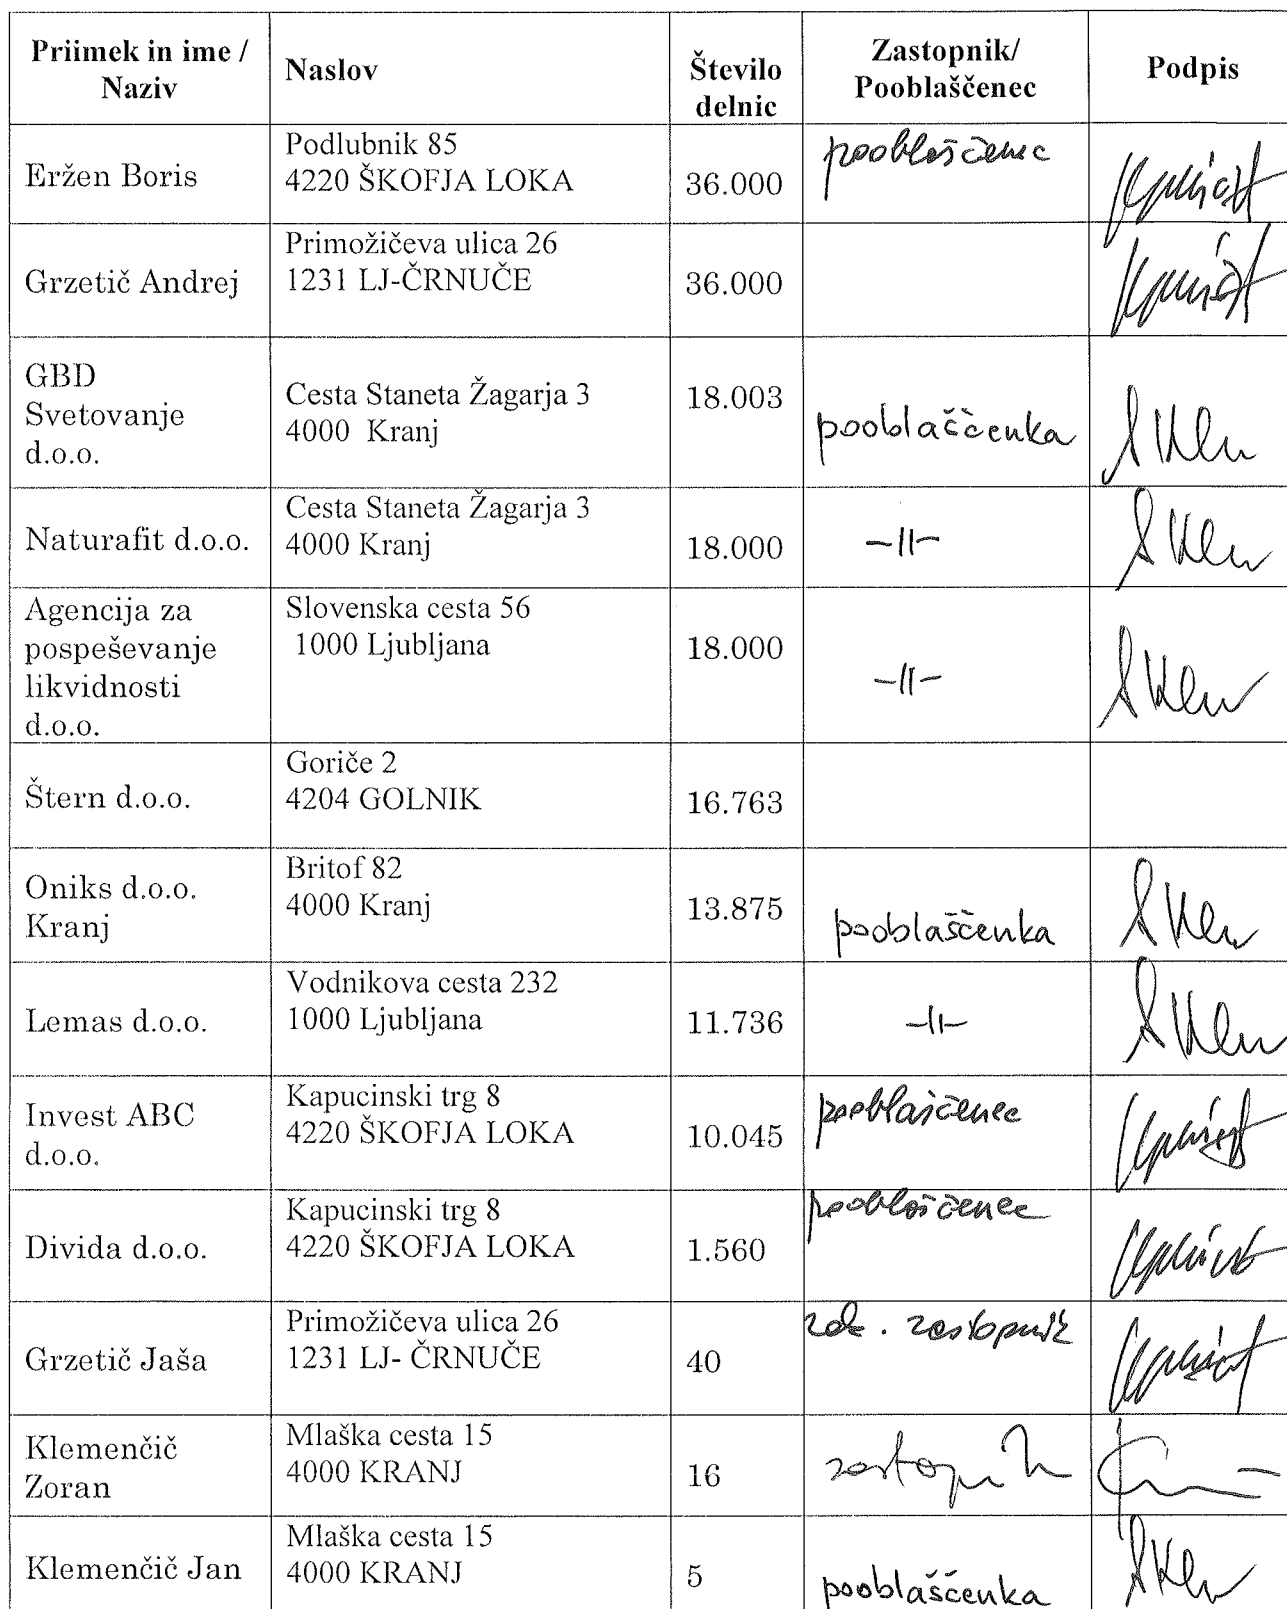 Priimek in ime /
Naziv
Naslov
Število
delnic
Zastopnik/
Pooblaščenec
Podpis
Eržen Boris
Podlubnik 85
4220 ŠKOFJA LOKA
36.000
pooblaščenec
Grzetič Andrej
Primožičeva ulica 26
1231 LJ-ČRNUČE
36.000
GBD
Svetovanje
d.o.o.
Cesta Staneta Žagarja 3
4000 Kranj
18.003
pooblaščenka
Naturafit d.o.o.
Cesta Staneta Žagarja 3
4000 Kranj
18.000
-||-
Agencija za
pospeševanje
likvidnosti
d.o.o.
Slovenska cesta 56
1000 Ljubljana
18.000
-||-
Štern d.o.o.
Goriče 2
4204 GOLNIK
16.763
Oniks d.o.o.
Kranj
Britof 82
4000 Kranj
13.875
pooblaščenka
Lemas d.o.o.
Vodnikova cesta 232
1000 Ljubljana
11.736
-||-
Invest ABC
d.o.o.
Kapucinski trg 8
4220 ŠKOFJA LOKA
10.045
pooblaščenec
Divida d.o.o.
Kapucinski trg 8
4220 ŠKOFJA LOKA
1.560
pooblaščenec
Grzetič Jaša
Primožičeva ulica 26
1231 LJ- ČRNUČE
40
zak. zastopnik
Klemenčič
Zoran
Mlaška cesta 15
4000 KRANJ
16
zastopnik
Klemenčič Jan
Mlaška cesta 15
4000 KRANJ
5
pooblaščenka